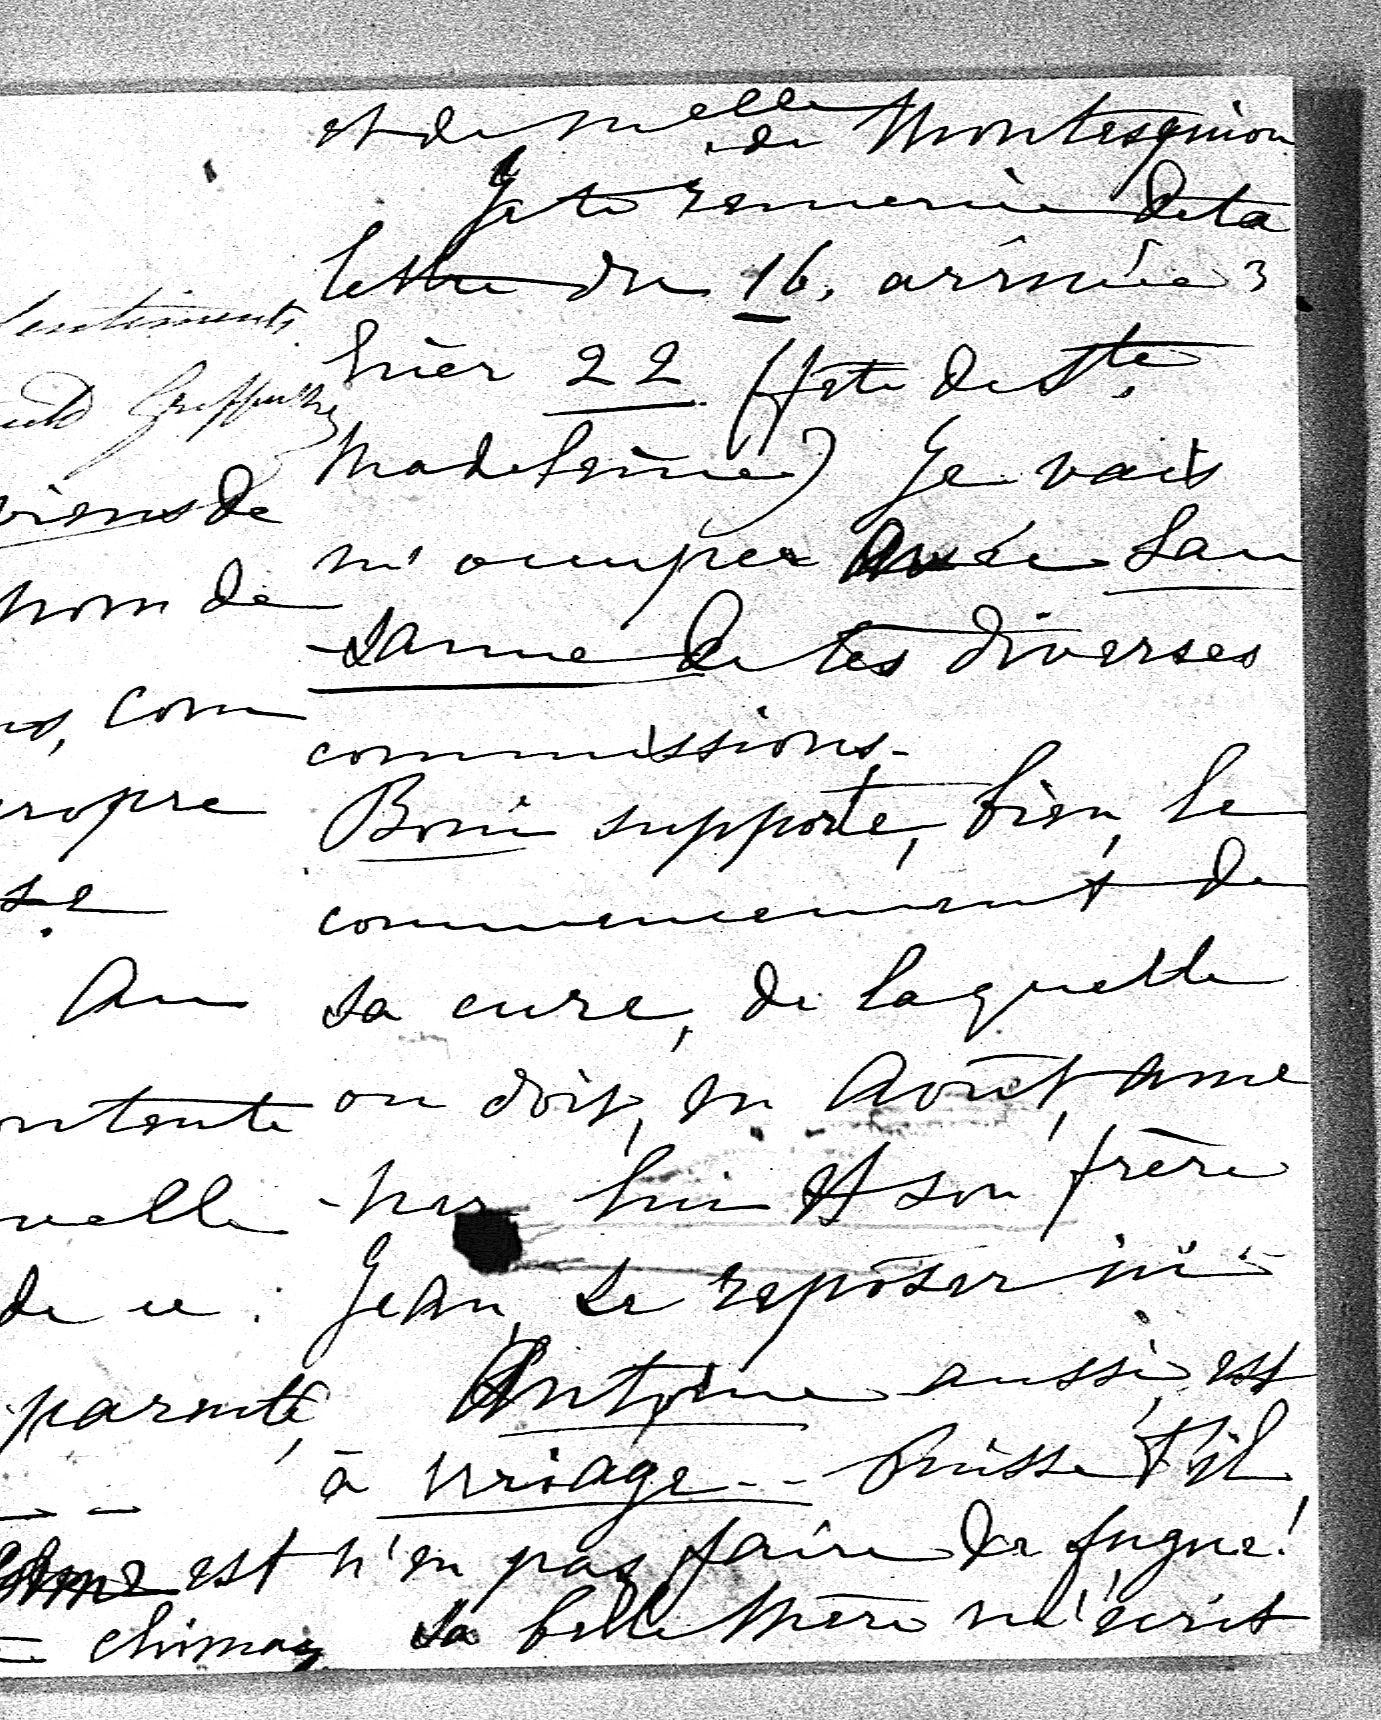 sentiments
Greffulhe
viens de
nom de
com
propre
se
Au
ontente
uvelle
de ce :
parenté,
est
= Chimay
et de Melle de Montesquiou
Je te remercie de ta
lettre du 16, arrivée
hier 22 (fête de Ste.
Madeleine) Je vais
m'occuper avec Lau
-sanne de tes diverses
commissions.
Boni supporte, bien, le
commencement de
sa cure, de laquelle
on doit, en Août, ame
-ner lui et son frère
Jean, se reposer ici -
Antoine aussi, est
à Uriage - - Puisse t'il
n'en pas faire de fugue!
sa belle Mère m'écrit